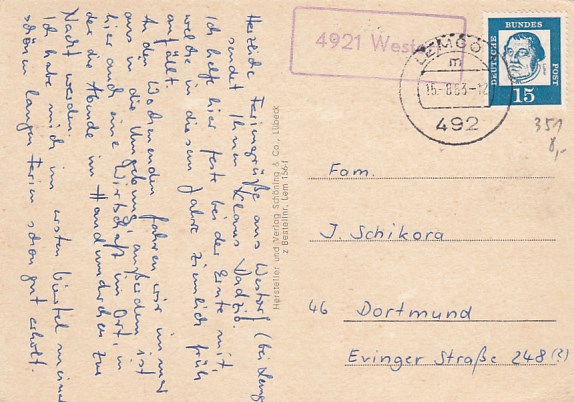 Herzliche Feriengrüße aus Westorf (bei Lemgo)
sendet Ihnen Klaus Dadzio.
Ich helfe hier feste bei der Ernte mit,
welche in diesem Jahre ziemlich früh
anfällt.
An den Wochenenden fahren wir immer
aus in die Umgebung, außerdem ist
hier auch eine Wirtschaft im Ort, in
der die Abende im Handumdrehen zur
Nacht werden.
Ich habe mich im ersten Viertel meiner
schönen langen Ferien schon gut erholt.
Hersteller und Verlag Schöning & Co., Lübeck
z Bestellnr. Lem 156-I
4921 Westorf
LEMGO
m
15-8.63-12
492
DEUTSCHE
BUNDES
POST
15
351
8,-
Fam.
J. Schikora
46 Dortmund
Evinger Straße 248 (?)